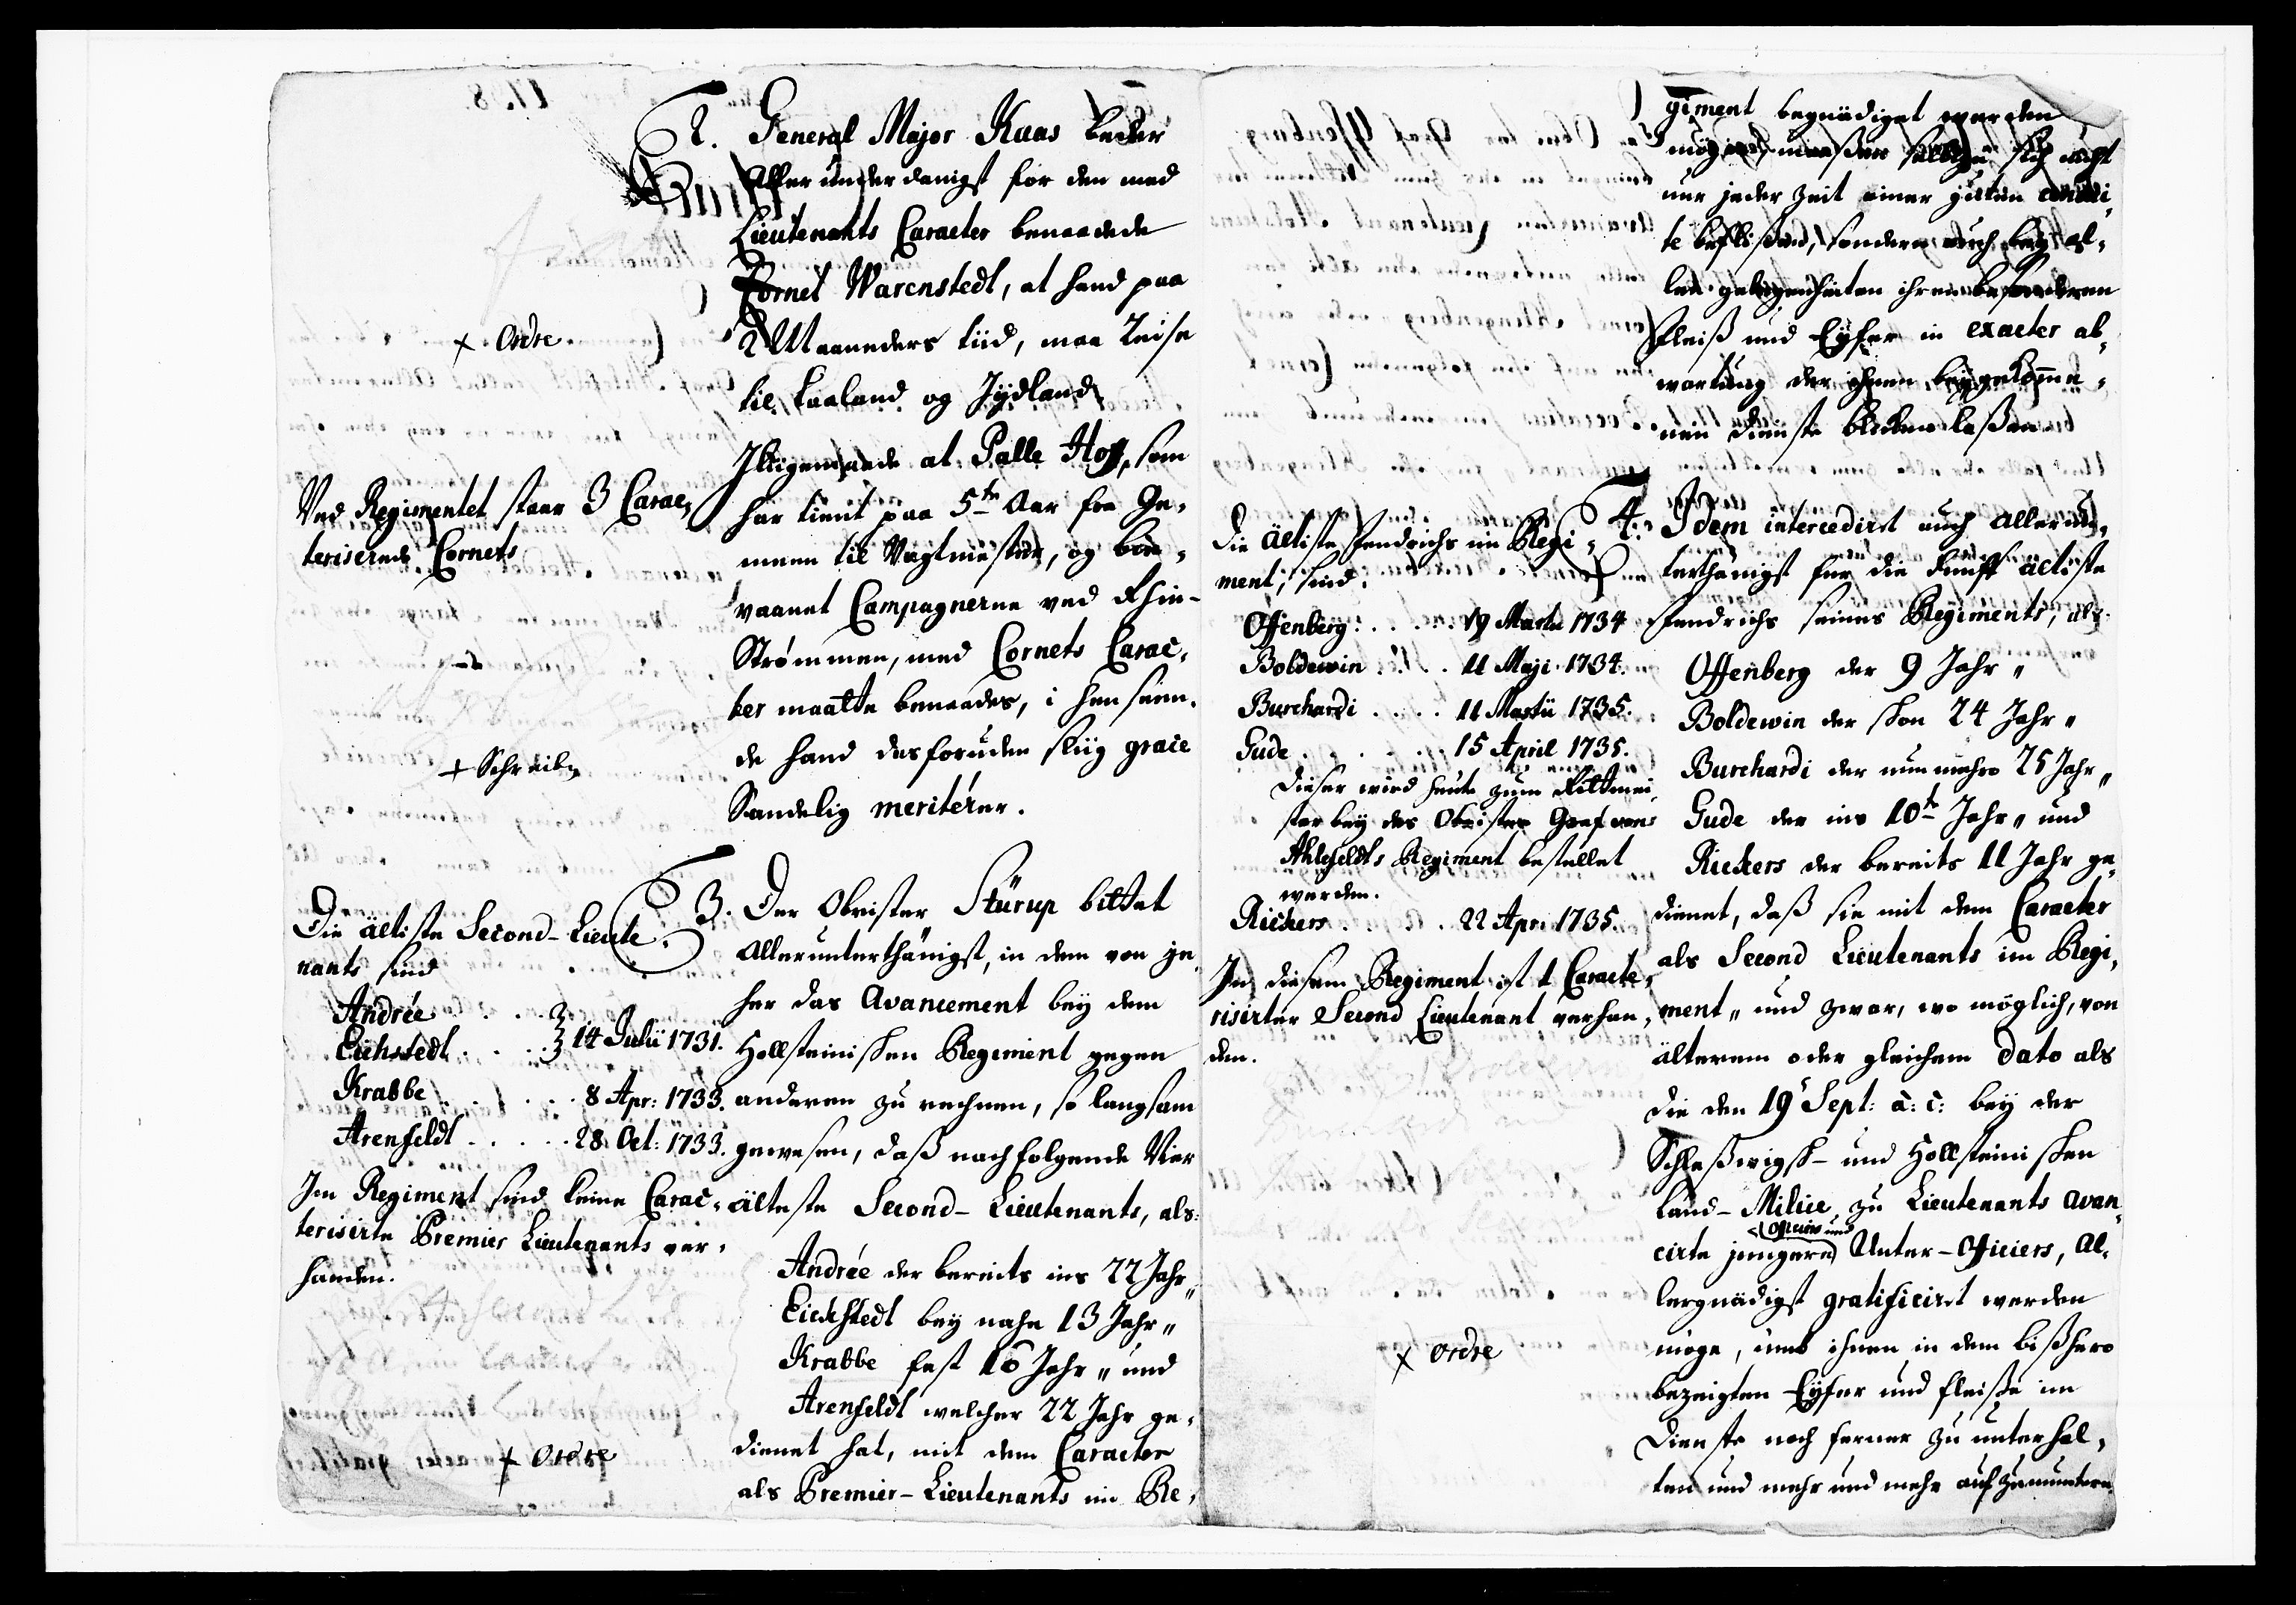 2. General Major Kaas beder
Allerunderdanigst for den med
Lieutenants Caracter benaadede
Cornet Warenstedt, at hand paa
2 Maaneders tiid, maa Reise
til Laaland og Jydland,
x Ordre
Jligemaade at Palle Hoff, som
har tient paa 5te Aar fra Ge-
meen til Vagtmester, og bie-
vaanet Campagnerne ved Rhin-
Strømmen, med Cornets Carac-
ter maatte benaades, i hen seen-
de hand desforuden slüg grace
Sandelig meritérer.
Ved Regimentet staar 3 Carac-
teriserede Cornets
+ Schreib
3. Der Obrister Stürup bittet
Allerunterthänigst, in dem von je-
her das Avancement bey dem
Hollsteinischen Regiment gegen
anderen zu rechnen, so langsam
gewesen, daß nachfolgende Vier
älteste Second-Lieutenants, als:
Andrée der bereits ins 22 Jahr „
Eickstedt bey nahe 13 Jahr „
Krabbe fast 16 Jahr „ und
Arenfeldt welcher 22 Jahr ge-
dienet hat, mit dem Caracter
als Premier-Lieutenants im Re-
Die älteste Second-Lieute-
nants sind
Andrée . . .
Eichstedt . . . 14 Julii 1731.
Krabbe . . . . . 8 Apr: 1733.
Arenfeldt . . . . . 28 Oct: 1733.
Im Regiment sind keine Carac-
terisirte Premier Lieutenants ver-
handen.
+ Ordre
giment begnädiget werden
mögen, maaßen selbige sich nicht
nur jeder Zeit einer guten condui-
te beflißen, sondern auch bey al-
len gelegenheiten ihren besonderen
Fleiß und Eyfer in exacter ab-
wartung der ihnen beygekomme-
nen Dienste blicken laßen.
4. Idem intercediret auch allerun-
terthänigst für die Fünff älteste
Fendrichs seines Regiments, als
Offenberg der 9 Jahr „
Boldewin der schon 24 Jahr „
Burchardi der nunmehro 25 Jahr „
Gude der ins 10te Jahr „ und
Rickers der bereits 11 Jahr ge-
dienet, daß sie mit dem Caracter
als Second Lieutenants im Regi-
ment „ und zwar, wo möglich, von
älterem oder gleichem Dato als
die den 19 Sept: a: c: bey der
Schleßwigsch- und Hollsteinischen
Land-Milice zu Lieutenants avan-
Officiers und
cirte jüngere Unter-Officiers, Al-
lergnädigst gratificiret werden
möge, umb ihnen in dem bißhero
bezeigten Eyfer und Fleiße im
Dienste noch ferner zu unterhal-
ten und mehr und mehr aufzumuntern.
Die älteste Fendrichs im Regi-
ment, sind.
Offenberg . . . . 19 Martii 1734
Boldewin . . . . 11 Maji 1734.
Burchardi . . . . 11 Martii 1735.
Gude . . . . . 15 April 1735.
Dieser wird heute zum Rittmei-
ster bey des Obristen Graf von
Ahlefeldts Regiment bestellet
werden.
Rickers . . . . 22 Apr: 1735.
In diesem Regiment ist 1 Caracte-
risirter Second Lieutenant verhan-
den.
x ordre